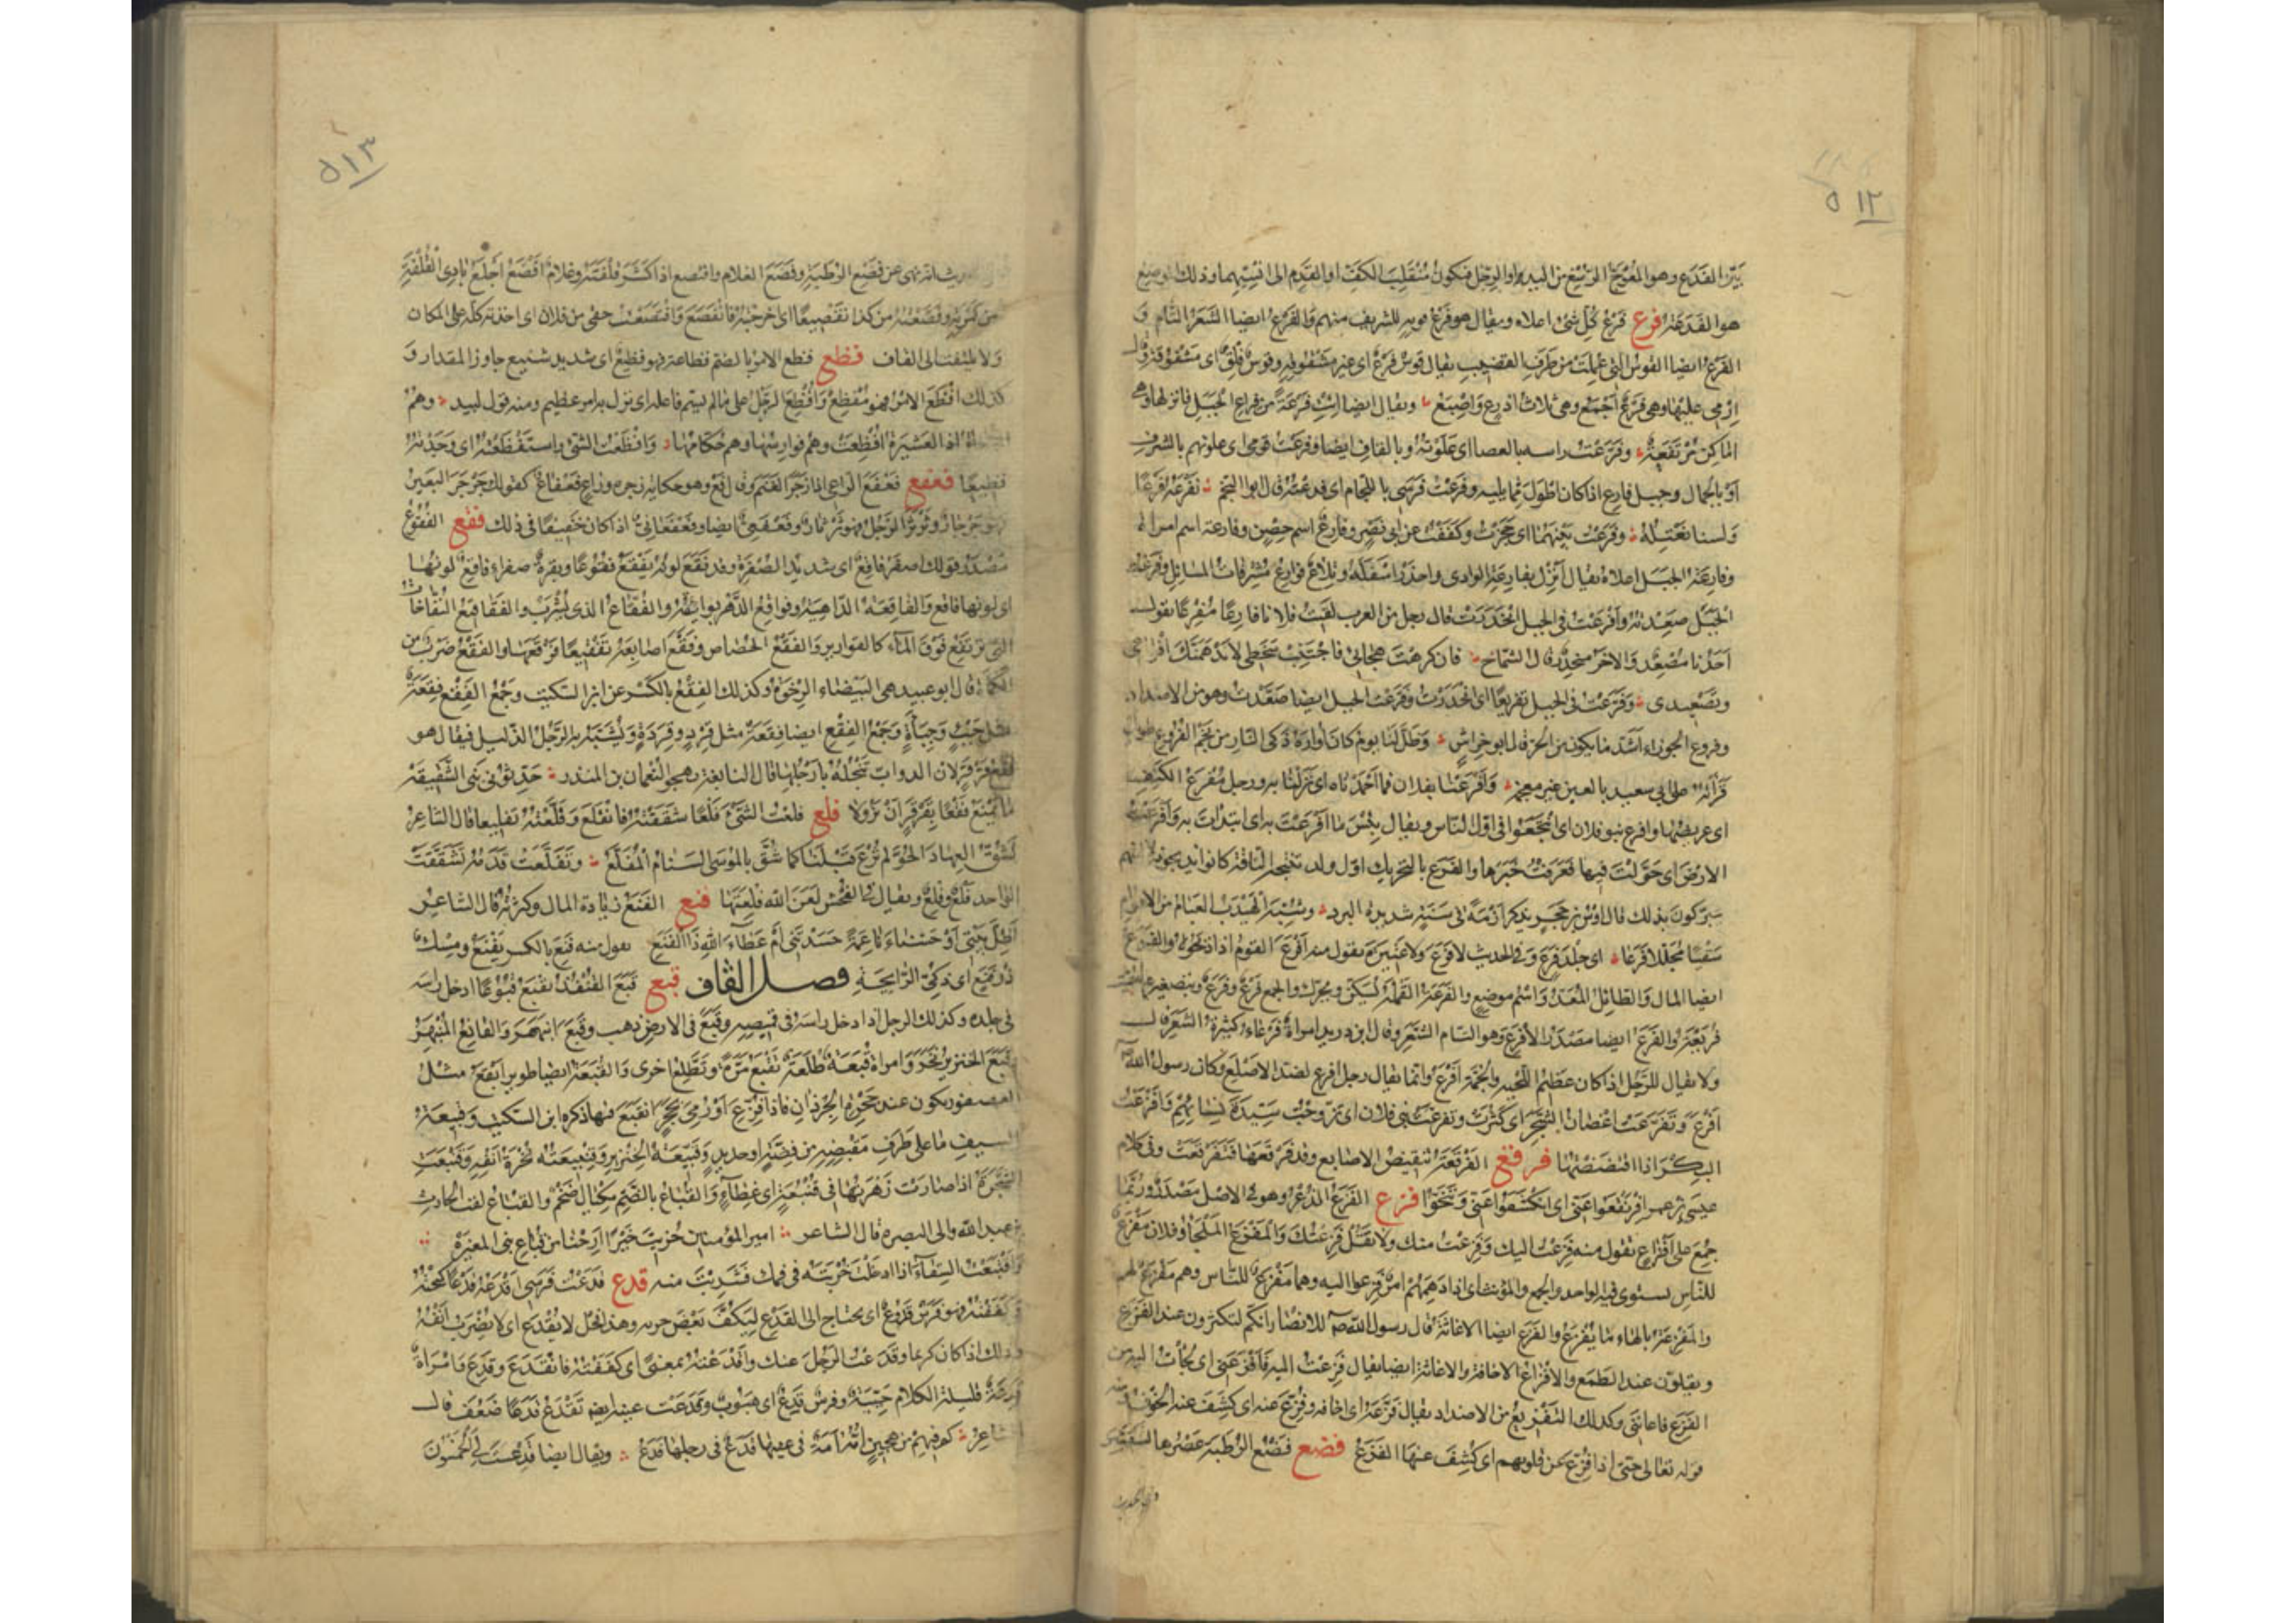 ٥١٢
بين الفدع وهو المعوج الرسغ من اليد او الرجل فيكون منقلب الكف او القدم الى انسيهما وذلك الموضع
هو الفدعة فرع فرع كل شئ اعلاه ويقال هو فرع قومه للشريف منهم والفرع ايضا الشعر التام و
الفرع ايضا القوس التي عملت من طرف القضيب يقال قوس فرع اى غير مشقوقة وقوس فلق اى مشقوقة وقال
ارمى عليها وهى فرع اجمع وهى ثلاث اذرع واصبع ويقال ايضا ائت فرعة من فراع الجبل فانزلها وهى
اماكن مرتفعة وفرعت راسه بالعصا اى علوته وبالقاف ايضا وفرعت قومى اى علوتهم بالشرف
او بالجمال وجبل فارع اذا كان اطول مما يليه وفرعت فرسى باللجام اى قدعته قال ابو النجم نفرعه فرعا
ولسنا نعتله وفرعت بينهما اى حجزت وكففت عن ابى نصر وفارع اسم حصن وفارعة اسم امراة
وفارعة الجبل اعلاه يقال انزل بفارعة الوادى واحذر اسفله وتلاع فوارع مشرفات المسايل وفرعت
الجبل صعدته وافرعت فى الجبل انحدرت قال رجل من العرب لقيت فلانا فارعا مفرعا يقول
احدنا مصعد والاخر منحدر قال الشماخ فان كرهت هجائى فاجتنب سخطى لا يدهمنك افراعى
وتصعيدى وفرعت فى الجبل تفريعا اى انحدرت وفرعت الجبل ايضا صعدت وهو من الاضداد
وفروع الجوزاء اشد ما يكون من الحر قال ابو خراش وظل لنا يوم كان اواره ذكى النار من نجم الفروع طويل
قرأته على ابى سعيد بالعين غير معجمة وافرعنا بفلان فما احمدناه اى نزلنا به ورجل مفرع الكتف
اى عريضها وافرع بنو فلان اى انتجعوا فى اول الناس ويقال بئس ما افرعت به اى ابتدات به وافرعت
الارض اى جولت فيها فعرفت خبرها والفرع بالتحريك اول ولد تنتجه الناقة كانوا يذبحونه لالهتهم
يتبركون بذلك قال اوس بن حجر يذكر ازمة فى سنة شديدة البرد وشبه الهيدب العبام من الاقوام
سقبا مجللا فرعا اى جلد فرع وفى الحديث لا فرع ولا عتيرة تقول منه افرع القوم اذا ذبحوه والفرع
ايضا المال الطائل المعد واسم موضع والفرعة القملة تسكن وتحرك والجمع فرع وفرع وبتصغيرها سميت
فريعة والفرع ايضا مصدر الافرع وهو التام الشعر وقال ابن دريد امراة فرعاء كثيرة الشعر قال
ولا يقال للرجل اذا كان عظيم اللحية والجمة افرع وانما يقال رجل افرع لضد الاصلع وكان رسول الله
افرع وتفرعت اغصان الشجر اى كثرت وتفرعت بنى فلان اى تزوجت سيدة نسائهم وافرعت
البكر اذا افتضضتها فرقع الفرقعة تنقيض الاصابع وقد فرقعها فتفرقعت وفى كلام
عيسى بن عمر افرنقعوا عنى اى انكشفوا عنى وتنحوا فزع الفزع الذعر وهو فى الاصل مصدر وربما
جمع على افزاع تقول منه فزعت اليك وفزعت منك ولا تقل فزعتك والمفزع الملجأ وفلان مفزع
للناس يستوى فيه الواحد والجمع والمؤنث اى اذا دهمهم امر فزعوا اليه وهما مفزع للناس وهم مفزع لهم
والمفزعة بالهاء ما يفزع منه والفزع ايضا الاغاثة قال رسول الله للانصار انكم لتكثرون عند الفزع
وتقلون عند الطمع والافزاع الاخافة والاغاثة ايضا يقال فزعت اليه فافزعنى اى لجأت اليه من
الفزع فاغاثنى وكذلك التفزيع من الاضداد يقال فزعه اى اخافه وفزع عنه اى كشف عنه الخوف ومنه
قوله تعالى حتى اذا فزع عن قلوبهم اى كشف عنها الفزع فضع فضع الرطبة عصرها لتنقشر
وفى الحديث
٥١٣
نهى عن فضع الرطبة وفضع الغلام وافتضع اذا كشر قلفته وغلام افضع اجلع بادى القلفة
من كمرته وفضعته من كذا تفضيعا اى اخرجته فانفضع وافتضعت حقى من فلان اى اخذته كله على المكان
ولا يلتفت الى القاف فظع فظع الامر بالضم فظاعة فهو فظيع اى شديد شنيع جاوز المقدار و
كذلك افظع الامر فهو مفظع وافظع الرجل على ما لم يسم فاعله اى نزل به امر عظيم ومنه قول لبيد وهم
السعاة اذا العشيرة افظعت وهم فوارسها وهم حكامها وافظعت الشئ واستفظعته اى وجدته
فظيعا فعفع فعفع الراعى اذا زجر الغنم وقال فع وهو حكاية زجره وراع فعفاع كقولك جرجر البعير
فهو جرجار وثرثر الرجل فهو ثرثار وفعفعى ايضا وفعفعانى اذا كان خفيفا فى ذلك فقع الفقوع
مصدر قولك اصفر فاقع اى شديد الصفرة وقد فقع لونه يفقع فقوعا وبقرة صفراء فاقع لونها
اى لونها فاقع والفاقعة الداهية وفواقع الدهر بوائقه والفقاع الذى يشرب والفقاقيع النفاخات
التى ترتفع فوق الماء كالقوارير والفقع الحصاص وفقع اصابعه تفقيعا فرقعها والفقع ضرب من
الكمأة قال ابو عبيد هى البيضاء الرخوة وكذلك الفقع بالكسر عن ابن السكيت وجمع الفقع فقعة
مثل جبء وجبأة وجمع الفقع ايضا فقعة مثل قرد وقردة ويشبه به الرجل الذليل فيقال هو
فقع قرقر لان الدواب تنجله بارجلها قال النابغة يهجو النعمان بن المنذر حدثونى بنى الشقيقة
ما يمنع فقعا بقرقر ان يزولا فلع فلعت الشئ فلعا شققته فانفلع وفلعته تفليعا قال الشاعر
نشق العهاد الحو لم ترع قبلنا كما شق بالموسى السنام المفلع وتفلعت قدمه تشققت
الواحد فلع وفلع ويقال فى الفحش لعن الله فلعتها فنع الفنع زيادة المال وكثرته قال الشاعر
اظل بيتى او حسناء ناعمة حسدتنى ام عطاء الله ذا الفنع تقول منه فنع بالكسر يفنع ومسك
ذو فنع اى ذكى الرائحة فصل القاف قبع قبع القنفذ يقبع قبوعا ادخل راسه
فى جلده وكذلك الرجل اذا ادخل راسه فى قميصه وقبع فى الارض ذهب وقبع انبهر والقابع المنبهر
وقبع الخنزير نخر وامراة قبعة طلعة تقبع مرة وتطلع اخرى والقبعة ايضا طوير ابقع مثل
العصفور يكون عند جحرة الجرذان فاذا فزع او رمى بحجر انقبع فيها ذكره ابن السكيت وقبيعة
السيف ما على طرف مقبضه من فضة او حديد وقبيعة الخنزير وقنبيعته نخرة انفه وقنبعت
الشجرة اذا صارت زهرتها فى قنبعة اى غطاء والقباع بالضم مكيال ضخم والقباع لقب الحارث
بن عبد الله والى البصرة قال الشاعر امير المؤمنين جزيت خيرا ارحنا من قباع بنى المغيرة
واقتبعت السقاء اذا ادخلت خربته فى فمك فشربت منه قدع قدعت فرسى اقدعه قدعا كبحته
وكففته وهو فرس قدوع اى يحتاج الى القدع ليكف بعض جريه وهذا فحل لا يقدع اى لا يضرب انفه
وذلك اذا كان كريما وقدعت الرجل عنك واقدعته بمعنى اى كففته فانقدع وقدع وامراة
قدعة قليلة الكلام حيية وفرس قدع اى هبوب وقدعت عينه ايضا تقدع قدعا ضعفت قال
الشاعر كم فيهم من هجين امه امة فى عينها قدع فى رجلها فدع ويقال ايضا قدعت لى الخمسون